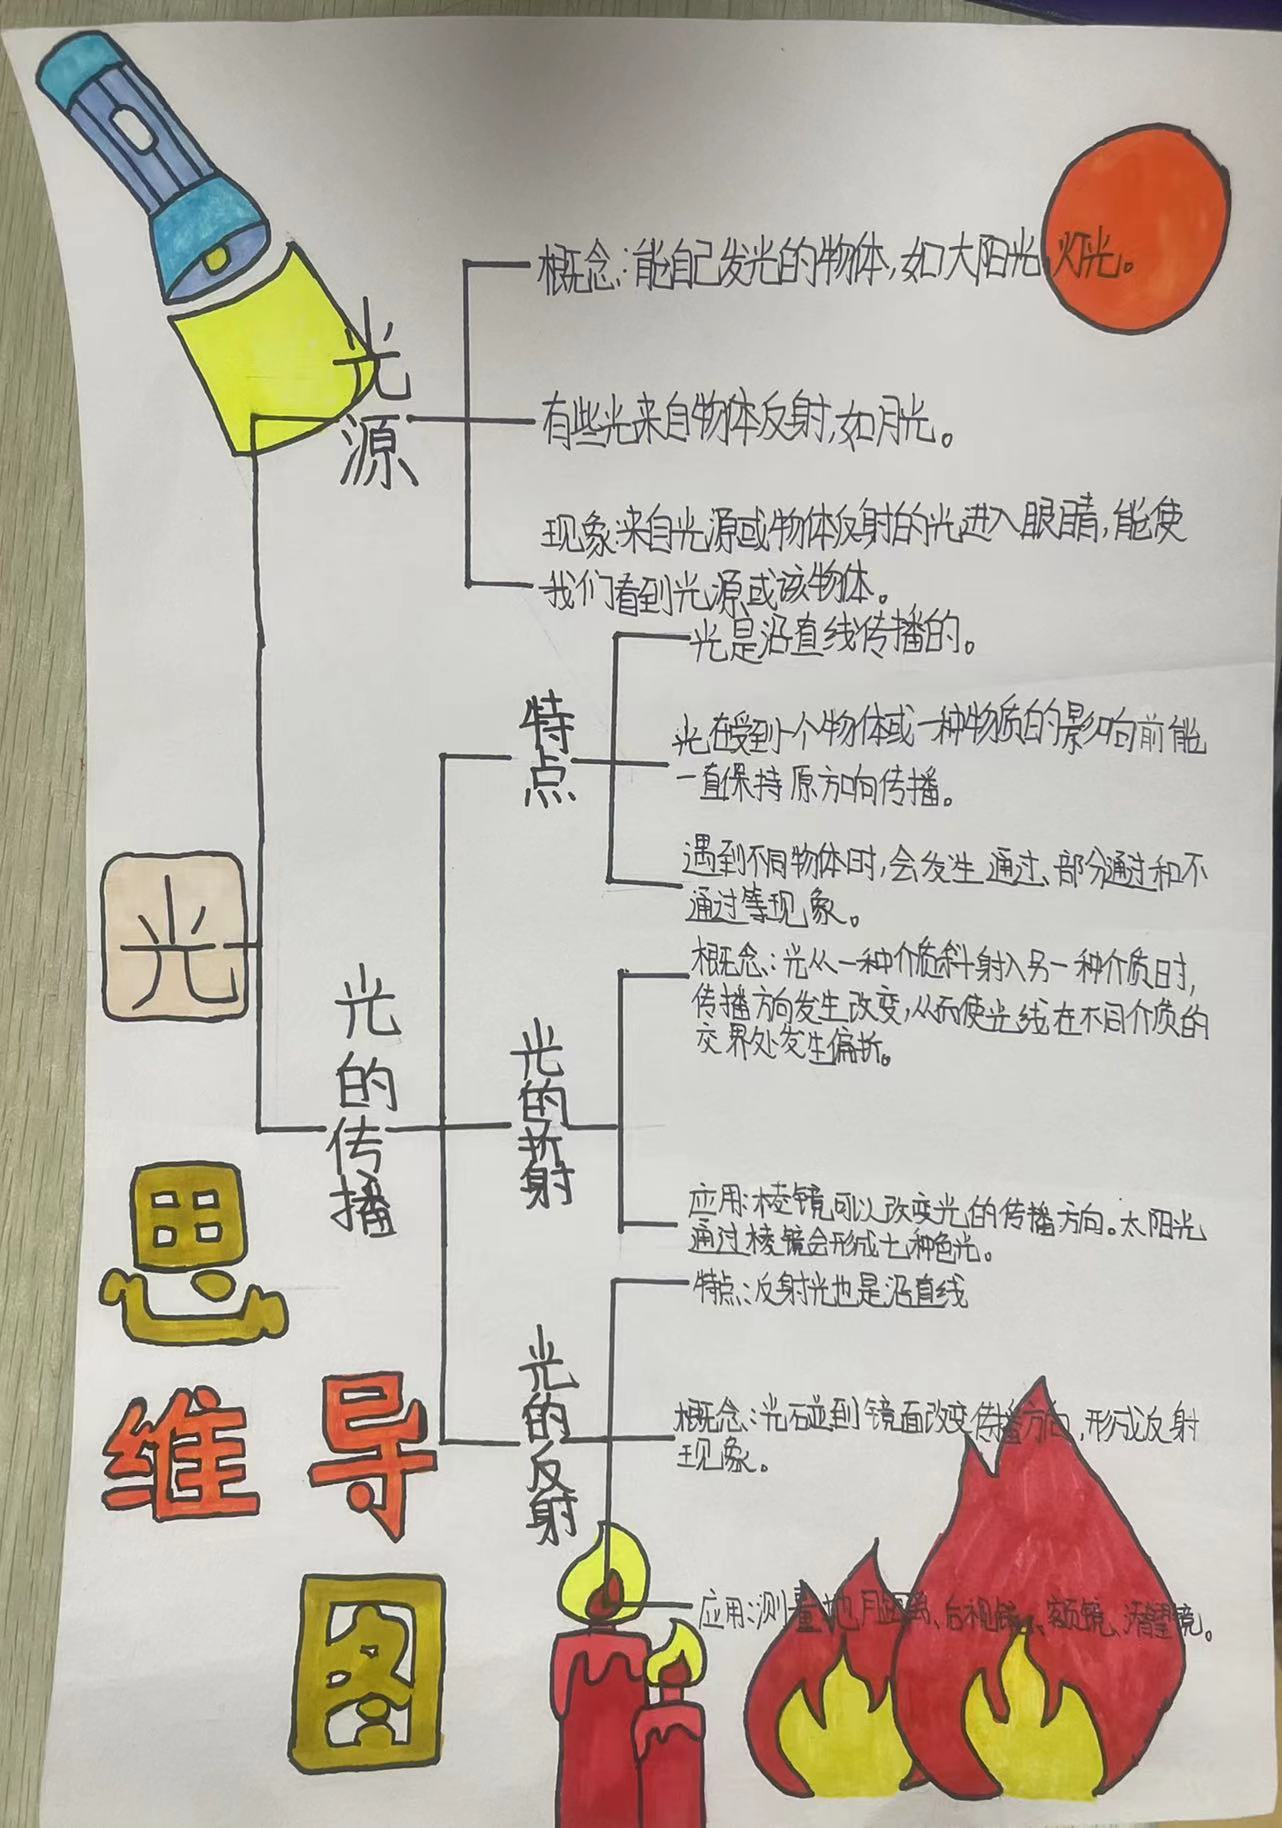 光源
概念:能自己发光的物体,如大阳光、灯光。
有些光来自物体反射,如月光。
现象:来自光源或物体反射的光进入眼睛,能使
我们看到光源或该物体。
光的传播
特点
光是沿直线传播的。
光在受到一个物体或一种物质的影响前能
一直保持原方向传播。
遇到不同物体时,会发生通过、部分通过和不
通过等现象。
光的折射
概念:光从一种介质斜射入另一种介质时,
传播方向发生改变,从而使光线在不同介质的
交界处发生偏折。
应用:棱镜可以改变光的传播方向。太阳光
通过棱镜会形成七种色光。
光的反射
特点:反射光也是沿直线
概念:光碰到镜面改变传播方向,形成反射
现象。
应用:测量地月距离、后视镜、额镜、潜望镜。
光
思
维导
图